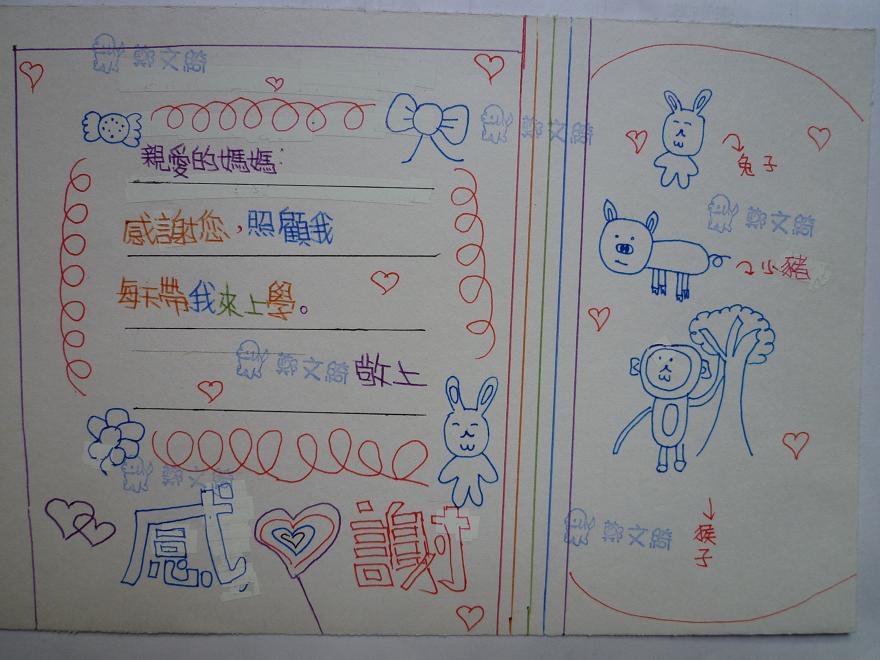 鄭文綺
親愛的媽媽：
鄭文綺
感謝您，照顧我
每天帶我來上學。
鄭文綺敬上
鄭文綺
感謝
兔子
鄭文綺
小豬
猴子
鄭文綺